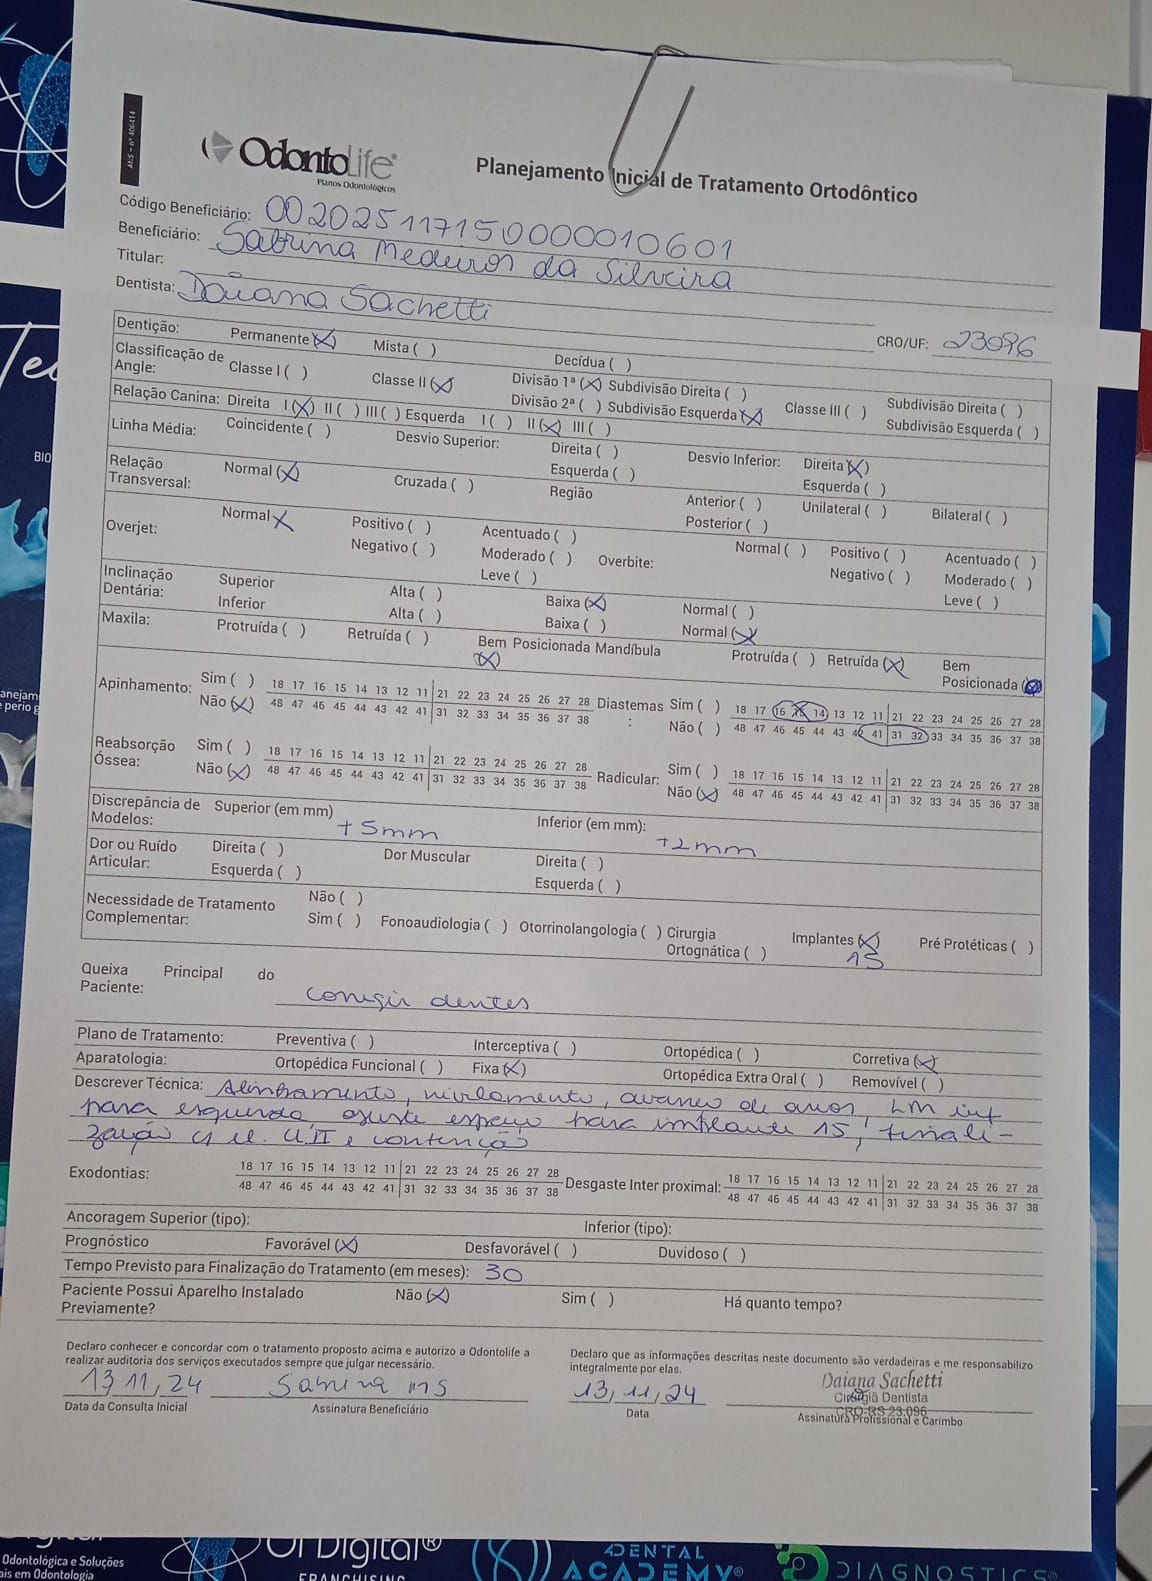 ANS - nº 406414
OdontoLife
Planos Odontológicos
Planejamento Inicial de Tratamento Ortodôntico
Código Beneficiário: 002025117150000010601
Beneficiário: Sabrina Medeiros da Silveira
Titular:
Dentista: Daiana Sachetti
CRO/UF: 23096
Dentição: Permanente (X) Mista ( ) Decídua ( )
Classificação de Angle: Classe I ( ) Classe II (X) Divisão 1ª (X) Subdivisão Direita ( ) Classe III ( ) Subdivisão Direita ( )
Divisão 2ª ( ) Subdivisão Esquerda (X) Subdivisão Esquerda ( )
Relação Canina: Direita I (X) II ( ) III ( ) Esquerda I ( ) II (X) III ( )
Linha Média: Coincidente ( ) Desvio Superior: Direita ( ) Desvio Inferior: Direita (X)
Esquerda ( ) Esquerda ( )
Relação Transversal: Normal (X) Cruzada ( ) Região Anterior ( ) Unilateral ( ) Bilateral ( )
Posterior ( )
Overjet: Normal X Positivo ( ) Acentuado ( ) Overbite: Normal ( ) Positivo ( ) Acentuado ( )
Negativo ( ) Moderado ( ) Negativo ( ) Moderado ( )
Leve ( ) Leve ( )
Inclinação Dentária: Superior Alta ( ) Baixa (X) Normal ( )
Inferior Alta ( ) Baixa ( ) Normal (X)
Maxila: Protruída ( ) Retruída ( ) Bem Posicionada (X) Mandíbula Protruída ( ) Retruída (X) Bem Posicionada ( )
Apinhamento: Sim ( ) 18 17 16 15 14 13 12 11 21 22 23 24 25 26 27 28 Diastemas : Sim ( ) 18 17 16 15 14 13 12 11 21 22 23 24 25 26 27 28
Não (X) 48 47 46 45 44 43 42 41 31 32 33 34 35 36 37 38 Não ( ) 48 47 46 45 44 43 42 41 31 32 33 34 35 36 37 38
Reabsorção Óssea: Sim ( ) 18 17 16 15 14 13 12 11 21 22 23 24 25 26 27 28 Radicular: Sim ( ) 18 17 16 15 14 13 12 11 21 22 23 24 25 26 27 28
Não (X) 48 47 46 45 44 43 42 41 31 32 33 34 35 36 37 38 Não (X) 48 47 46 45 44 43 42 41 31 32 33 34 35 36 37 38
Discrepância de Modelos: Superior (em mm) +5mm Inferior (em mm): +2mm
Dor ou Ruído Articular: Direita ( ) Dor Muscular Direita ( )
Esquerda ( ) Esquerda ( )
Necessidade de Tratamento Complementar: Não ( )
Sim ( ) Fonoaudiologia ( ) Otorrinolangologia ( ) Cirurgia Ortognática ( ) Implantes (X) 15 Pré Protéticas ( )
Queixa Principal do Paciente: corrigir dentes
Plano de Tratamento: Preventiva ( ) Interceptiva ( ) Ortopédica ( ) Corretiva (X)
Aparatologia: Ortopédica Funcional ( ) Fixa (X) Ortopédica Extra Oral ( ) Removível ( )
Descrever Técnica: Alinhamento, nivelamento, avanço de arco, LM inf
para esquerda, ajuste espaço para implante 15, finali-
zação cl II e contenção
Exodontias: 18 17 16 15 14 13 12 11 21 22 23 24 25 26 27 28 Desgaste Inter proximal: 18 17 16 15 14 13 12 11 21 22 23 24 25 26 27 28
48 47 46 45 44 43 42 41 31 32 33 34 35 36 37 38 48 47 46 45 44 43 42 41 31 32 33 34 35 36 37 38
Ancoragem Superior (tipo): Inferior (tipo):
Prognóstico Favorável (X) Desfavorável ( ) Duvidoso ( )
Tempo Previsto para Finalização do Tratamento (em meses): 30
Paciente Possui Aparelho Instalado Previamente? Não (X) Sim ( ) Há quanto tempo?
Declaro conhecer e concordar com o tratamento proposto acima e autorizo a Odontolife a
realizar auditoria dos serviços executados sempre que julgar necessário.
Declaro que as informações descritas neste documento são verdadeiras e me responsabilizo
integralmente por elas.
13/11/24
Data da Consulta Inicial
Assinatura Beneficiário
13/11/24
Data
Daiana Sachetti
Cirurgiã Dentista
CRO-RS 23.096
Assinatura Profissional e Carimbo
BIO
anejam
perio
Odontológica e Soluções
ais em Odontologia
Digital®
FRANCHISING
DENTAL
ACADEMY®
DIAGNOSTICS®